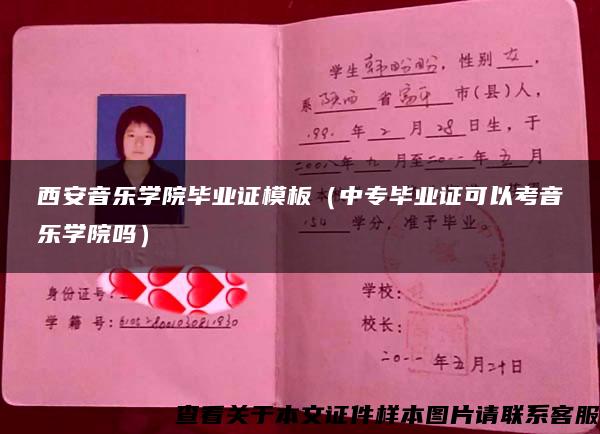 学生韩盼盼，性别女，
系陕西省富平市(县)人，
1991年2月28日生，于
2008年九月至二〇一一年五月
西安音乐学院毕业证模板（中专毕业证可以考音
乐学院吗）
154学分，准予毕业。
身份证号：
学籍号：
学校：
校长：
二〇一一年五月二十日
查看关于本文证件样本图片请联系客服